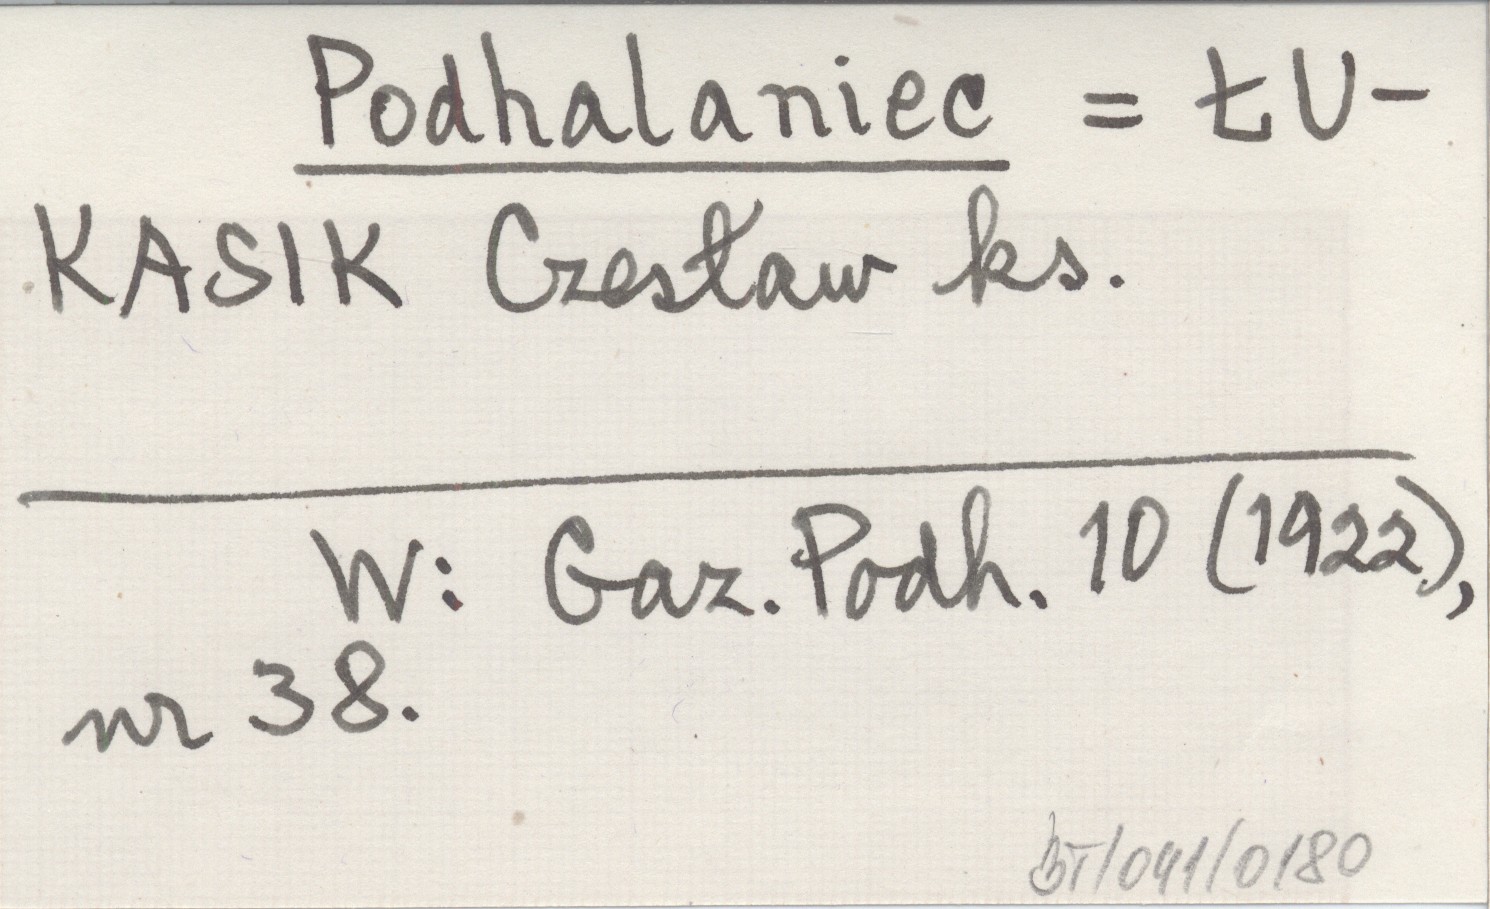 Podhalaniec = ŁU-
KASIK Czesław ks.
W: Gaz. Podh. 10 (1922),
nr 38.
BT/041/0180